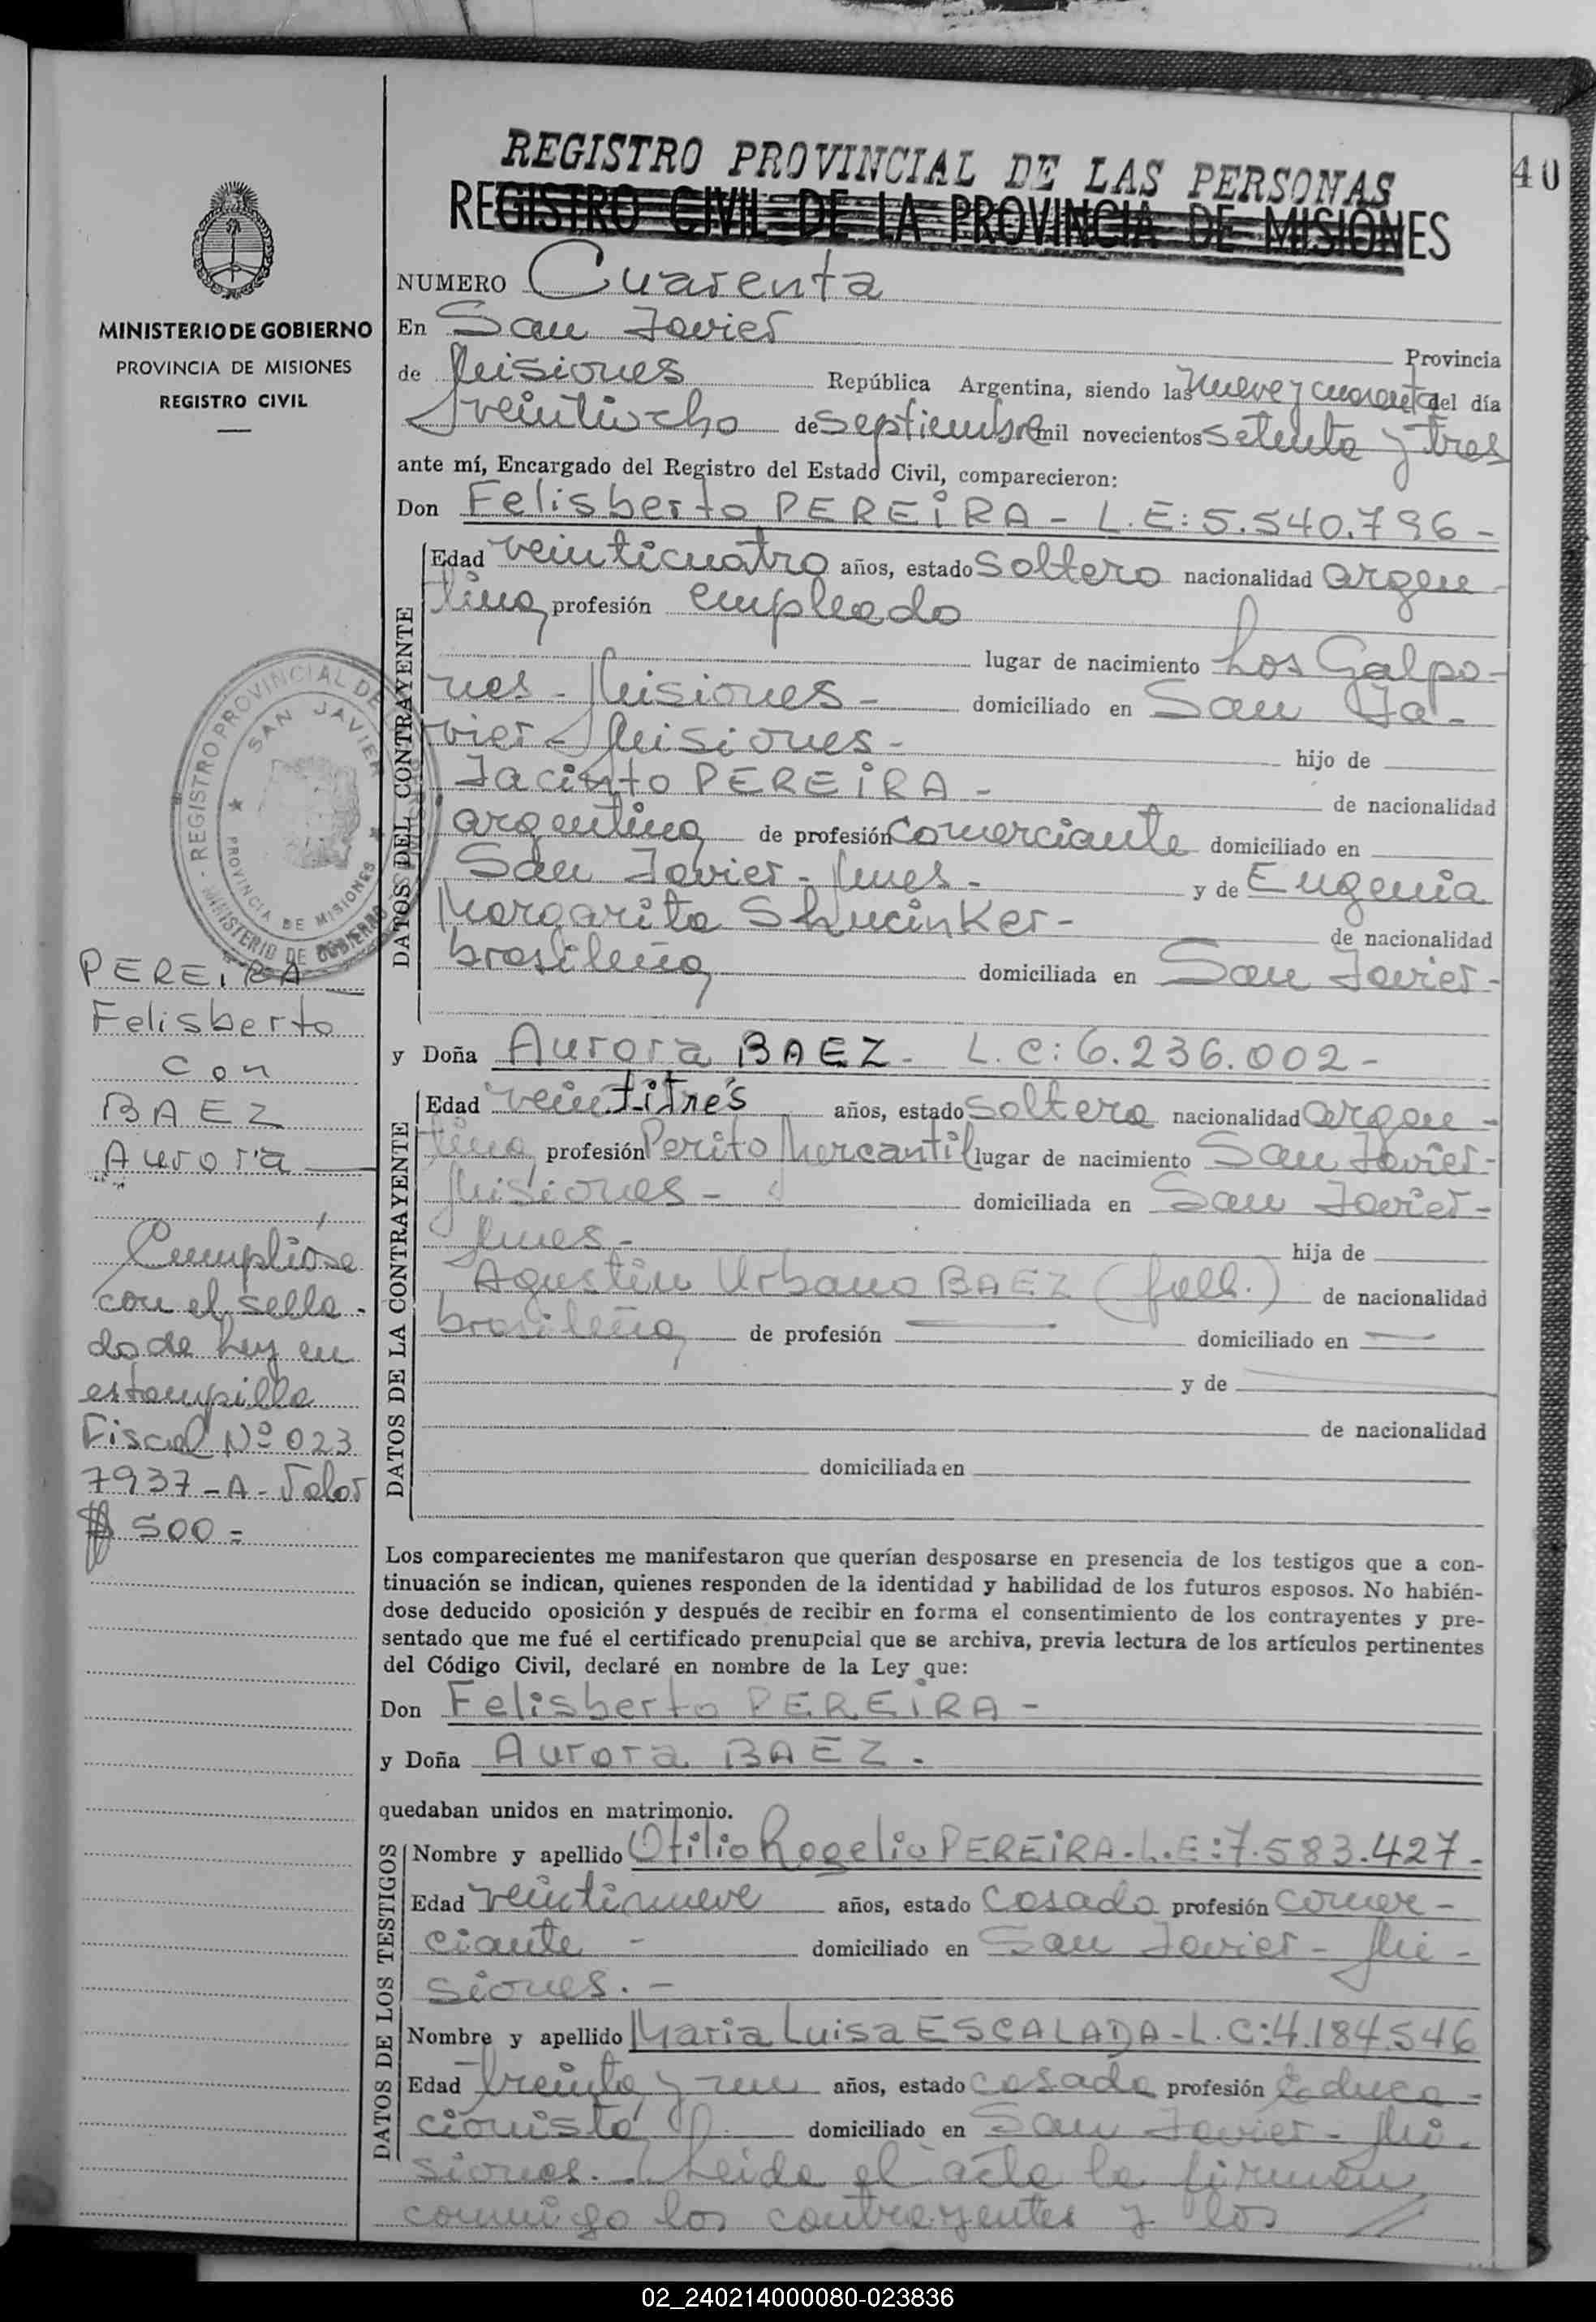 REGISTRO PROVINCIAL DE LAS PERSONAS
40
REGISTRO CIVIL DE LA PROVINCIA DE MISIONES
MINISTERIO DE GOBIERNO
PROVINCIA DE MISIONES
REGISTRO CIVIL
NUMERO Cuarenta
En San Javier Provincia
de Misiones República Argentina, siendo las nueve y cuarenta del día
veintiocho de septiembre mil novecientos setenta y tres
ante mí, Encargado del Registro del Estado Civil, comparecieron:
Don Felisberto PEREIRA - L.E: 5.540.796 -
DATOS DEL CONTRAYENTE
Edad veinticuatro años, estado soltero nacionalidad argen-
tina, profesión empleado
lugar de nacimiento Los Galpo-
nes - Misiones - domiciliado en San Ja-
vier - Misiones - hijo de
Jacinto PEREIRA - de nacionalidad
argentina de profesión comerciante domiciliado en
San Javier - Mnes - y de Eugenia
Margarita Shucinker - de nacionalidad
brasileña, domiciliada en San Javier -
REGISTRO PROVINCIAL DE
SAN JAVIER
PROVINCIA DE MISIONES
MINISTERIO DE GOBIERNO
PEREIRA
Felisberto
con
BAEZ
Aurora
Cumplióse
con el sella-
do de ley en
estampilla
Fiscal Nº 023
7937-A-Valor
$ 500=
y Doña Aurora BAEZ - L.C: 6.236.002 -
DATOS DE LA CONTRAYENTE
Edad veintitrés años, estado soltera nacionalidad argen-
tina, profesión Perito Mercantil lugar de nacimiento San Javier -
Misiones - domiciliada en San Javier -
Mnes - hija de
Agustín Urbano BAEZ (fall.) de nacionalidad
brasileña, de profesión domiciliado en
y de
de nacionalidad
domiciliada en
Los comparecientes me manifestaron que querían desposarse en presencia de los testigos que a con-
tinuación se indican, quienes responden de la identidad y habilidad de los futuros esposos. No habién-
dose deducido oposición y después de recibir en forma el consentimiento de los contrayentes y pre-
sentado que me fué el certificado prenupcial que se archiva, previa lectura de los artículos pertinentes
del Código Civil, declaré en nombre de la Ley que:
Don Felisberto PEREIRA -
y Doña Aurora BAEZ.
quedaban unidos en matrimonio.
DATOS DE LOS TESTIGOS
Nombre y apellido Otilio Rogelio PEREIRA - L.E: 7.583.427 -
Edad veintinueve años, estado casado profesión comer-
ciante - domiciliado en San Javier - Mi-
siones. -
Nombre y apellido Maria Luisa ESCALADA - L.C: 4.184.546
Edad treinta y un años, estado casada profesión Educa-
cionista domiciliado en San Javier - Mi-
siones. Leida el acta la firman
conmigo los contrayentes y los //
02_240214000080-023836